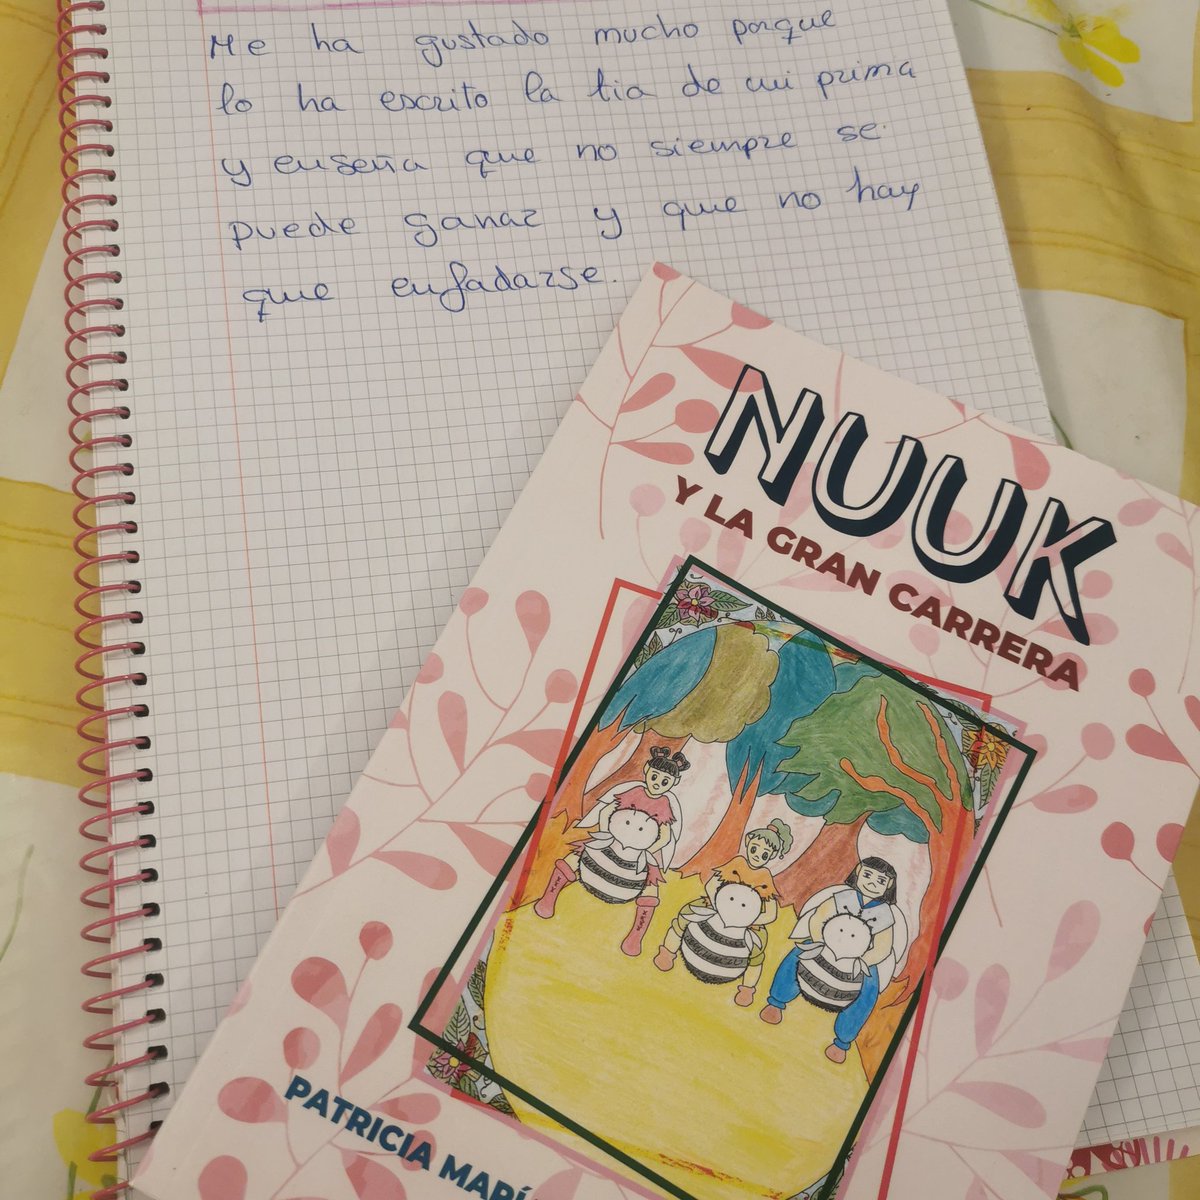 Me ha gustado mucho porque
lo ha escrito la tia de mi prima
y enseña que no siempre se
puede ganar y que no hay
que enfadarse.
NUUK
Y LA GRAN CARRERA
PATRICIA